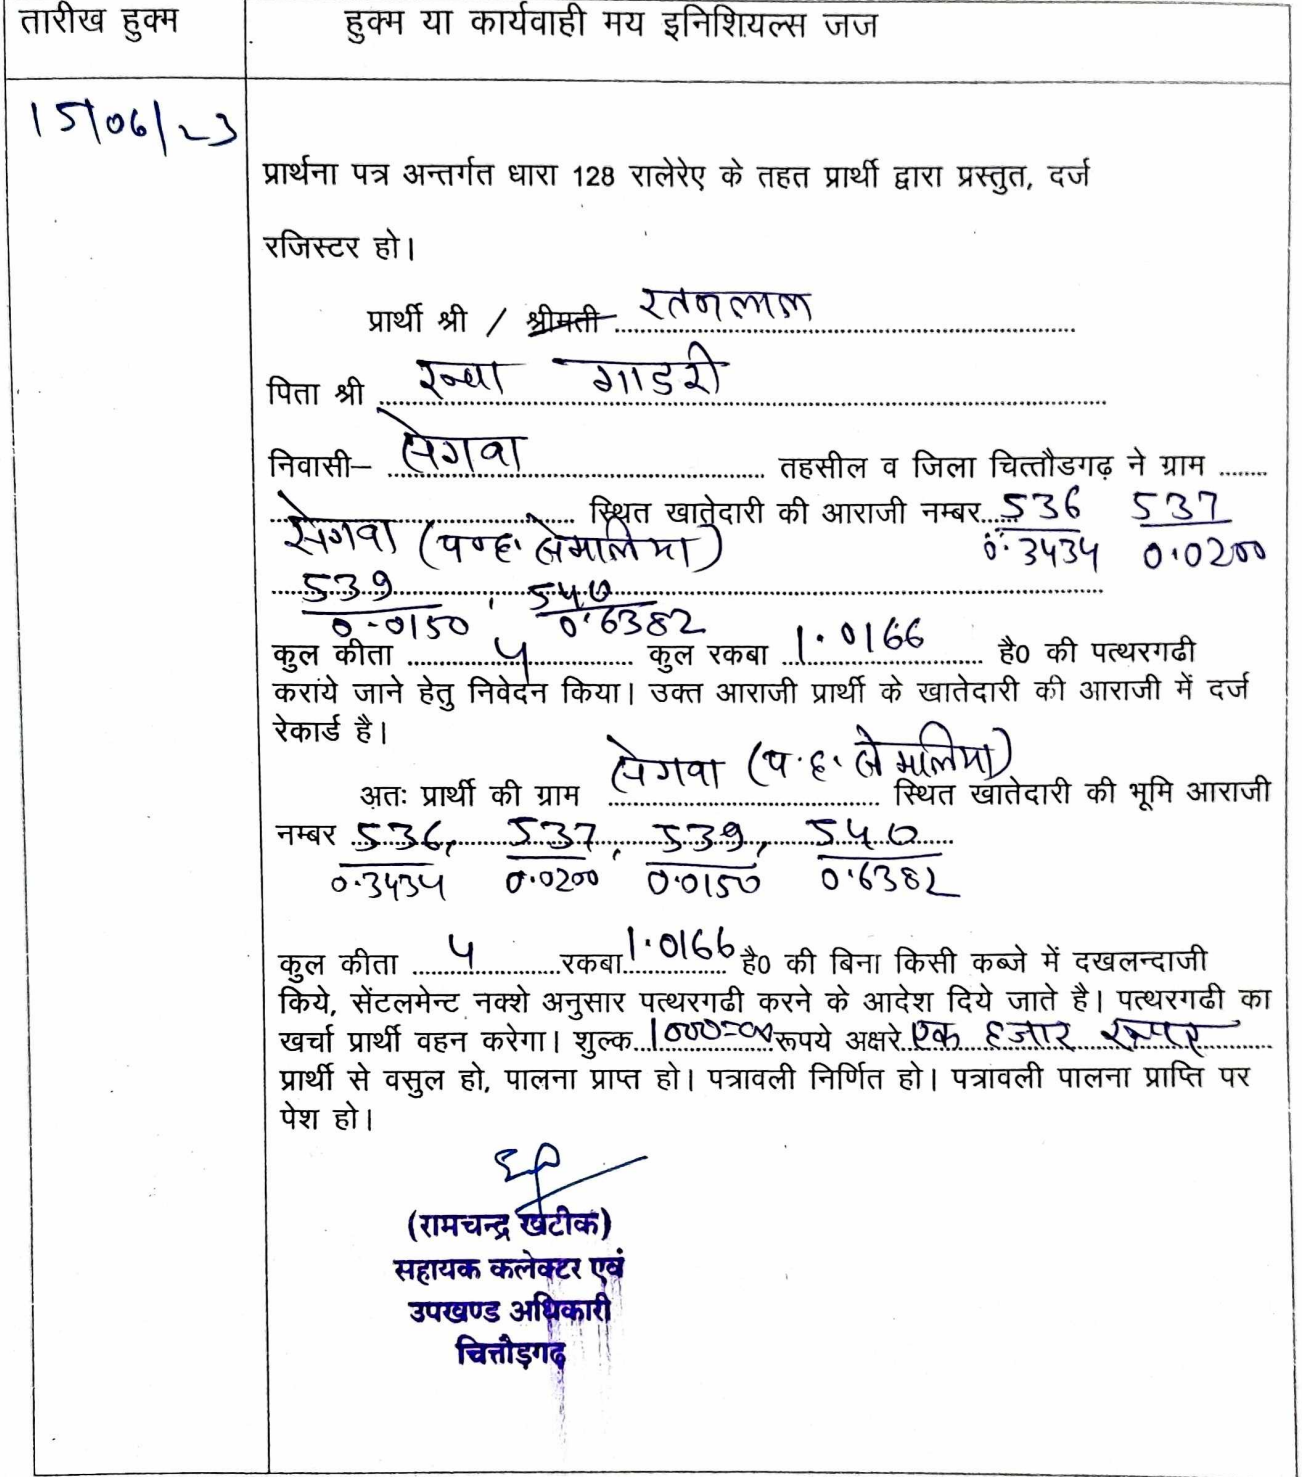 तारीख हुक्म
हुक्म या कार्यवाही मय इनिशियल्स जज
15/06/23
प्रार्थना पत्र अन्तर्गत धारा 128 रालेरेए के तहत प्रार्थी द्वारा प्रस्तुत, दर्ज
रजिस्टर हो।
प्रार्थी श्री / श्रीमती रतनलाल
पिता श्री गाडरी
निवासी– सेगवा तहसील व जिला चित्तौडगढ़ ने ग्राम
स्थित खातेदारी की आराजी नम्बर 536 537
सेगवा 0.3434 0.0200
539 , 540
0.0150 0.6382
कुल कीता 4 कुल रकबा 1.0166 है0 की पत्थरगढी
करांये जाने हेतु निवेदन किया। उक्त आराजी प्रार्थी के खातेदारी की आराजी में दर्ज
रेकार्ड है।
सेगवा
अतः प्रार्थी की ग्राम स्थित खातेदारी की भूमि आराजी
नम्बर 536, 537, 539, 540
0.3434 0.0200 0.0150 0.6382
कुल कीता 4 रकबा 1.0166 है0 की बिना किसी कब्जे में दखलन्दाजी
किये, सेंटलमेन्ट नक्शे अनुसार पत्थरगढी करने के आदेश दिये जाते है। पत्थरगढी का
खर्चा प्रार्थी वहन करेगा। शुल्क 1000=00 रूपये अक्षरे एक हजार रूपए
प्रार्थी से वसुल हो, पालना प्राप्त हो। पत्रावली निर्णित हो। पत्रावली पालना प्राप्ति पर
पेश हो।
(रामचन्द्र खटीक)
सहायक कलेक्टर एवं
उपखण्ड अधिकारी
चित्तौड़गढ़